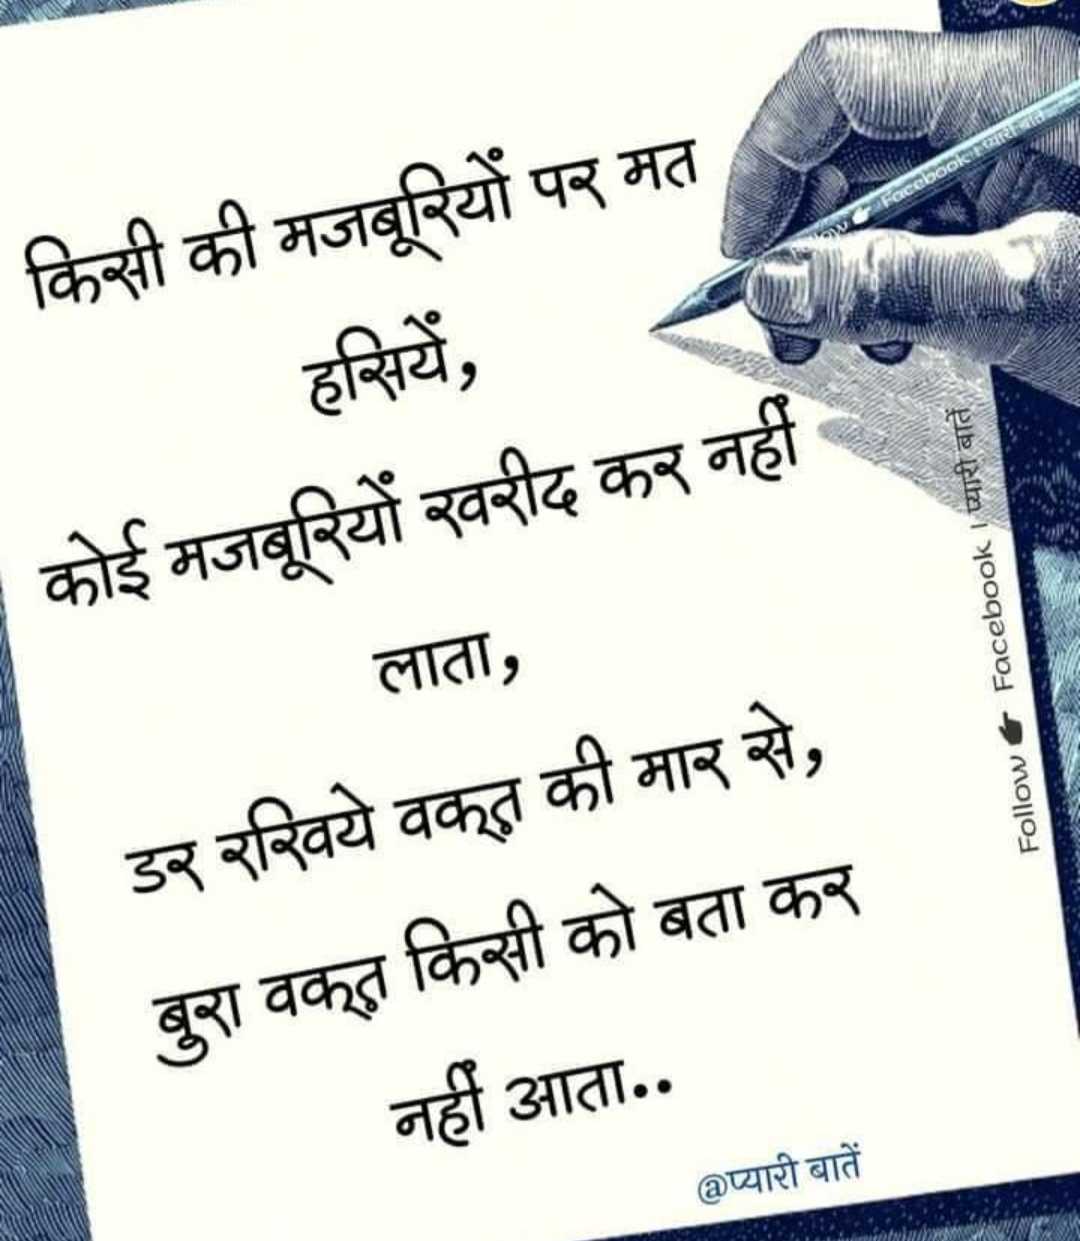 किसी की मजबूरियों पर मत
हसियें,
कोई मजबूरियों खरीद कर नहीं
लाता,
डर रखिये वक्त़ की मार से,
बुरा वक्त़ किसी को बता कर
नहीं आता..
@प्यारी बातें
Follow 👉 Facebook । प्यारी बातें
Facebook । प्यारी बातें